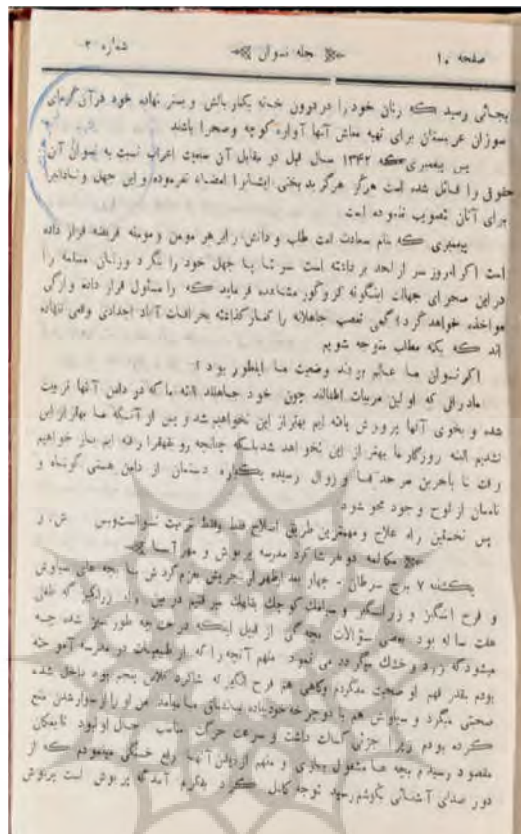 صفحه ۱۰ مجله نسوان شماره ۲
بجائی رسید که زنان خود را در درون خانه بکار بالش و بستر نهاده خود در آن گرمای
سوزان عربستان برای تهیه معاش آنها آواره کوچه و صحرا باشند
پس پیغمبری که ۱۳۴۲ سال قبل در مقابل آن سبعیت اعراب نسبت به نسوان آن
حقوق را قائل شده است هرگز هرگز بدبختی ایشانرا امضاء نفرموده و این جهل و نادانیرا
برای آنان تصویب ننموده است
پیغمبری که بنام سعادت امت طلب و دانش را بر هر مومن و مومنه فریضه قرار داده
است اگر امروز سر از لحد برداشته است سرتا پا جهل خود را بنگرد و زنان مسلمه را
در این صحرای جهالت اینگونه کر و کور مشاهده فرماید که را مسئول قرار داده و از کی
مواخذه خواهد کرد؟ کمی تعصب جاهلانه را کنار گذاشته بخرافات آباء اجدادی وقعی ننهاده
اند که بکنه مطلب متوجه شویم
اگر نسوان ما عالم بودند وضعیت ما اینطور بود؟
مادرانی که اولین مربیات اطفالند چون خود جاهلند البته ما که در دامن آنها تربیت
شده و بخوی آنها پرورش یافته ایم بهتر از این نخواهیم شد و پس از آنکه ما بهتر از این
نشدیم البته روزگار ما بهتر از این نخواهد شد بلکه چنانچه رو بقهقرا رفته ایم باز خواهیم
رفت تا بآخرین مرحله فنا و زوال رسیده یکباره دستمان از دامن هستی کوتاه و
نامان از لوح وجود محو شود
پس نخستین راه علاج و مهمترین طریق اصلاح فقط وفقط تربیت نسوانست و بس ش. ر
مکالمه دو نفر شاگرد مدرسه پریوش و مهر آسا
یکشنبه ۷ برج سرطان - چهار بعد از ظهر از تجریش بعزم گردش با بچه های سیاوش
و فرح انگیز و زر انگیز و سیامک کوچک بقلهک میرفتیم در بین راه زرانگیز که طفل
هفت ساله بود بعضی سؤالات بچه گی از قبیل اینکه درخت چه طور سبز شده چه
میشود که زرد و خشک میگردد می نمود منهم آنچه را که از طبیعیات در مدرسه آموخته
بودم بقدر فهم او صحبت میکردم وگاهی هم فرح انگیز که شاگرد کلاس پنجم بود داخل شده
صحبتی میکرد و سیاوش هم با دوچرخه خود پیاده بپابپای ما میآمد من او را از سوار شدن منع
کرده بودم زیرا جزئی کسالت داشت و سرعت حرکت مناسب حال او نبود تا بمکان
مقصود رسیدیم بچه ها مشغول ببازی و منهم از دیدن آنها رفع خستگی مینمودم که از
دور صدای آشنائی بگوشم رسید توجه کامل کردم بفکرم آمد که پریوش است پریوش